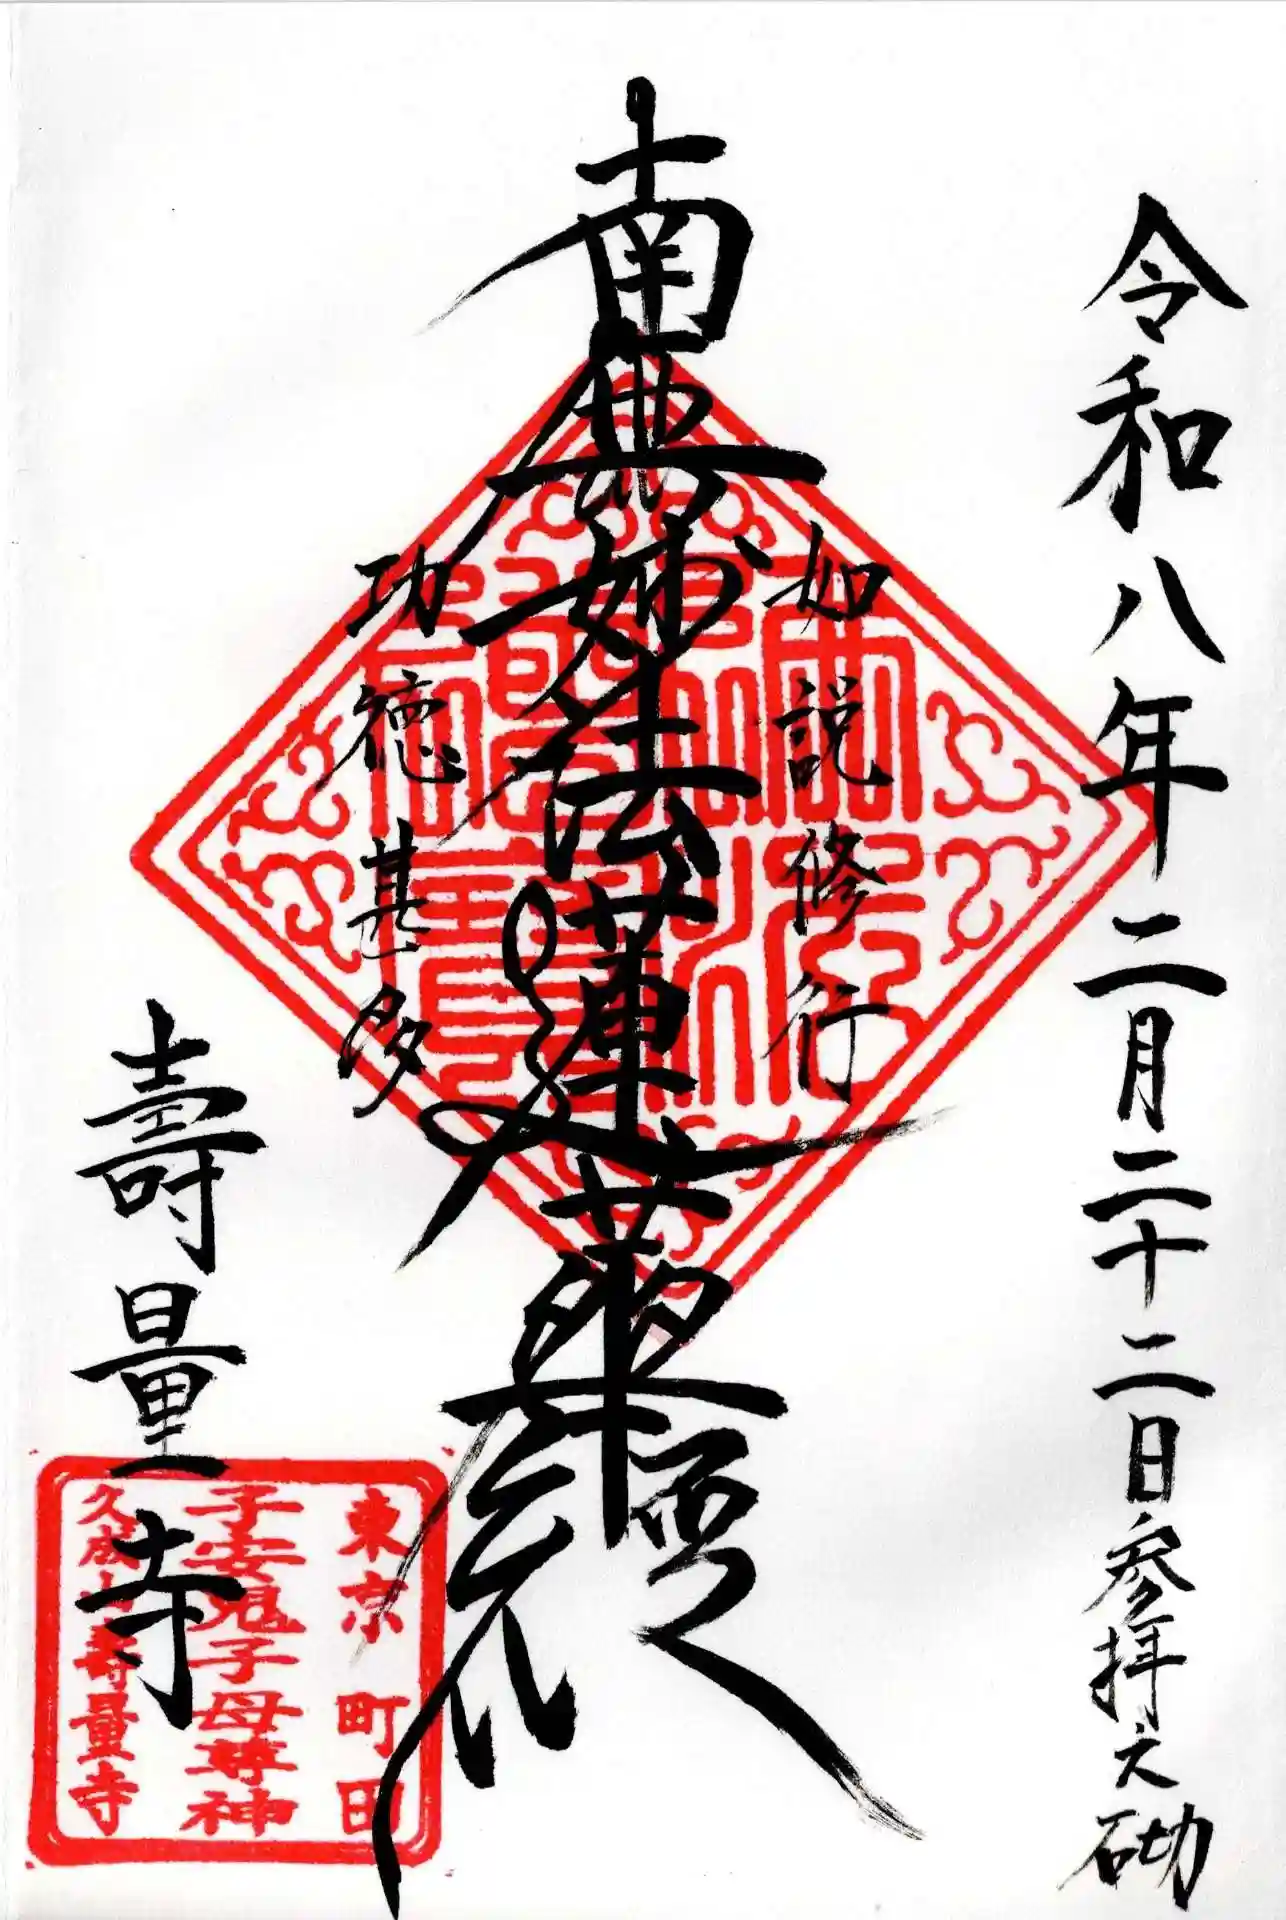 令和八年二月二十二日参拝之砌
如説修行
南無妙法蓮華經
功德甚多
壽量寺
東京町田
子安鬼子母尊神
久成山壽量寺